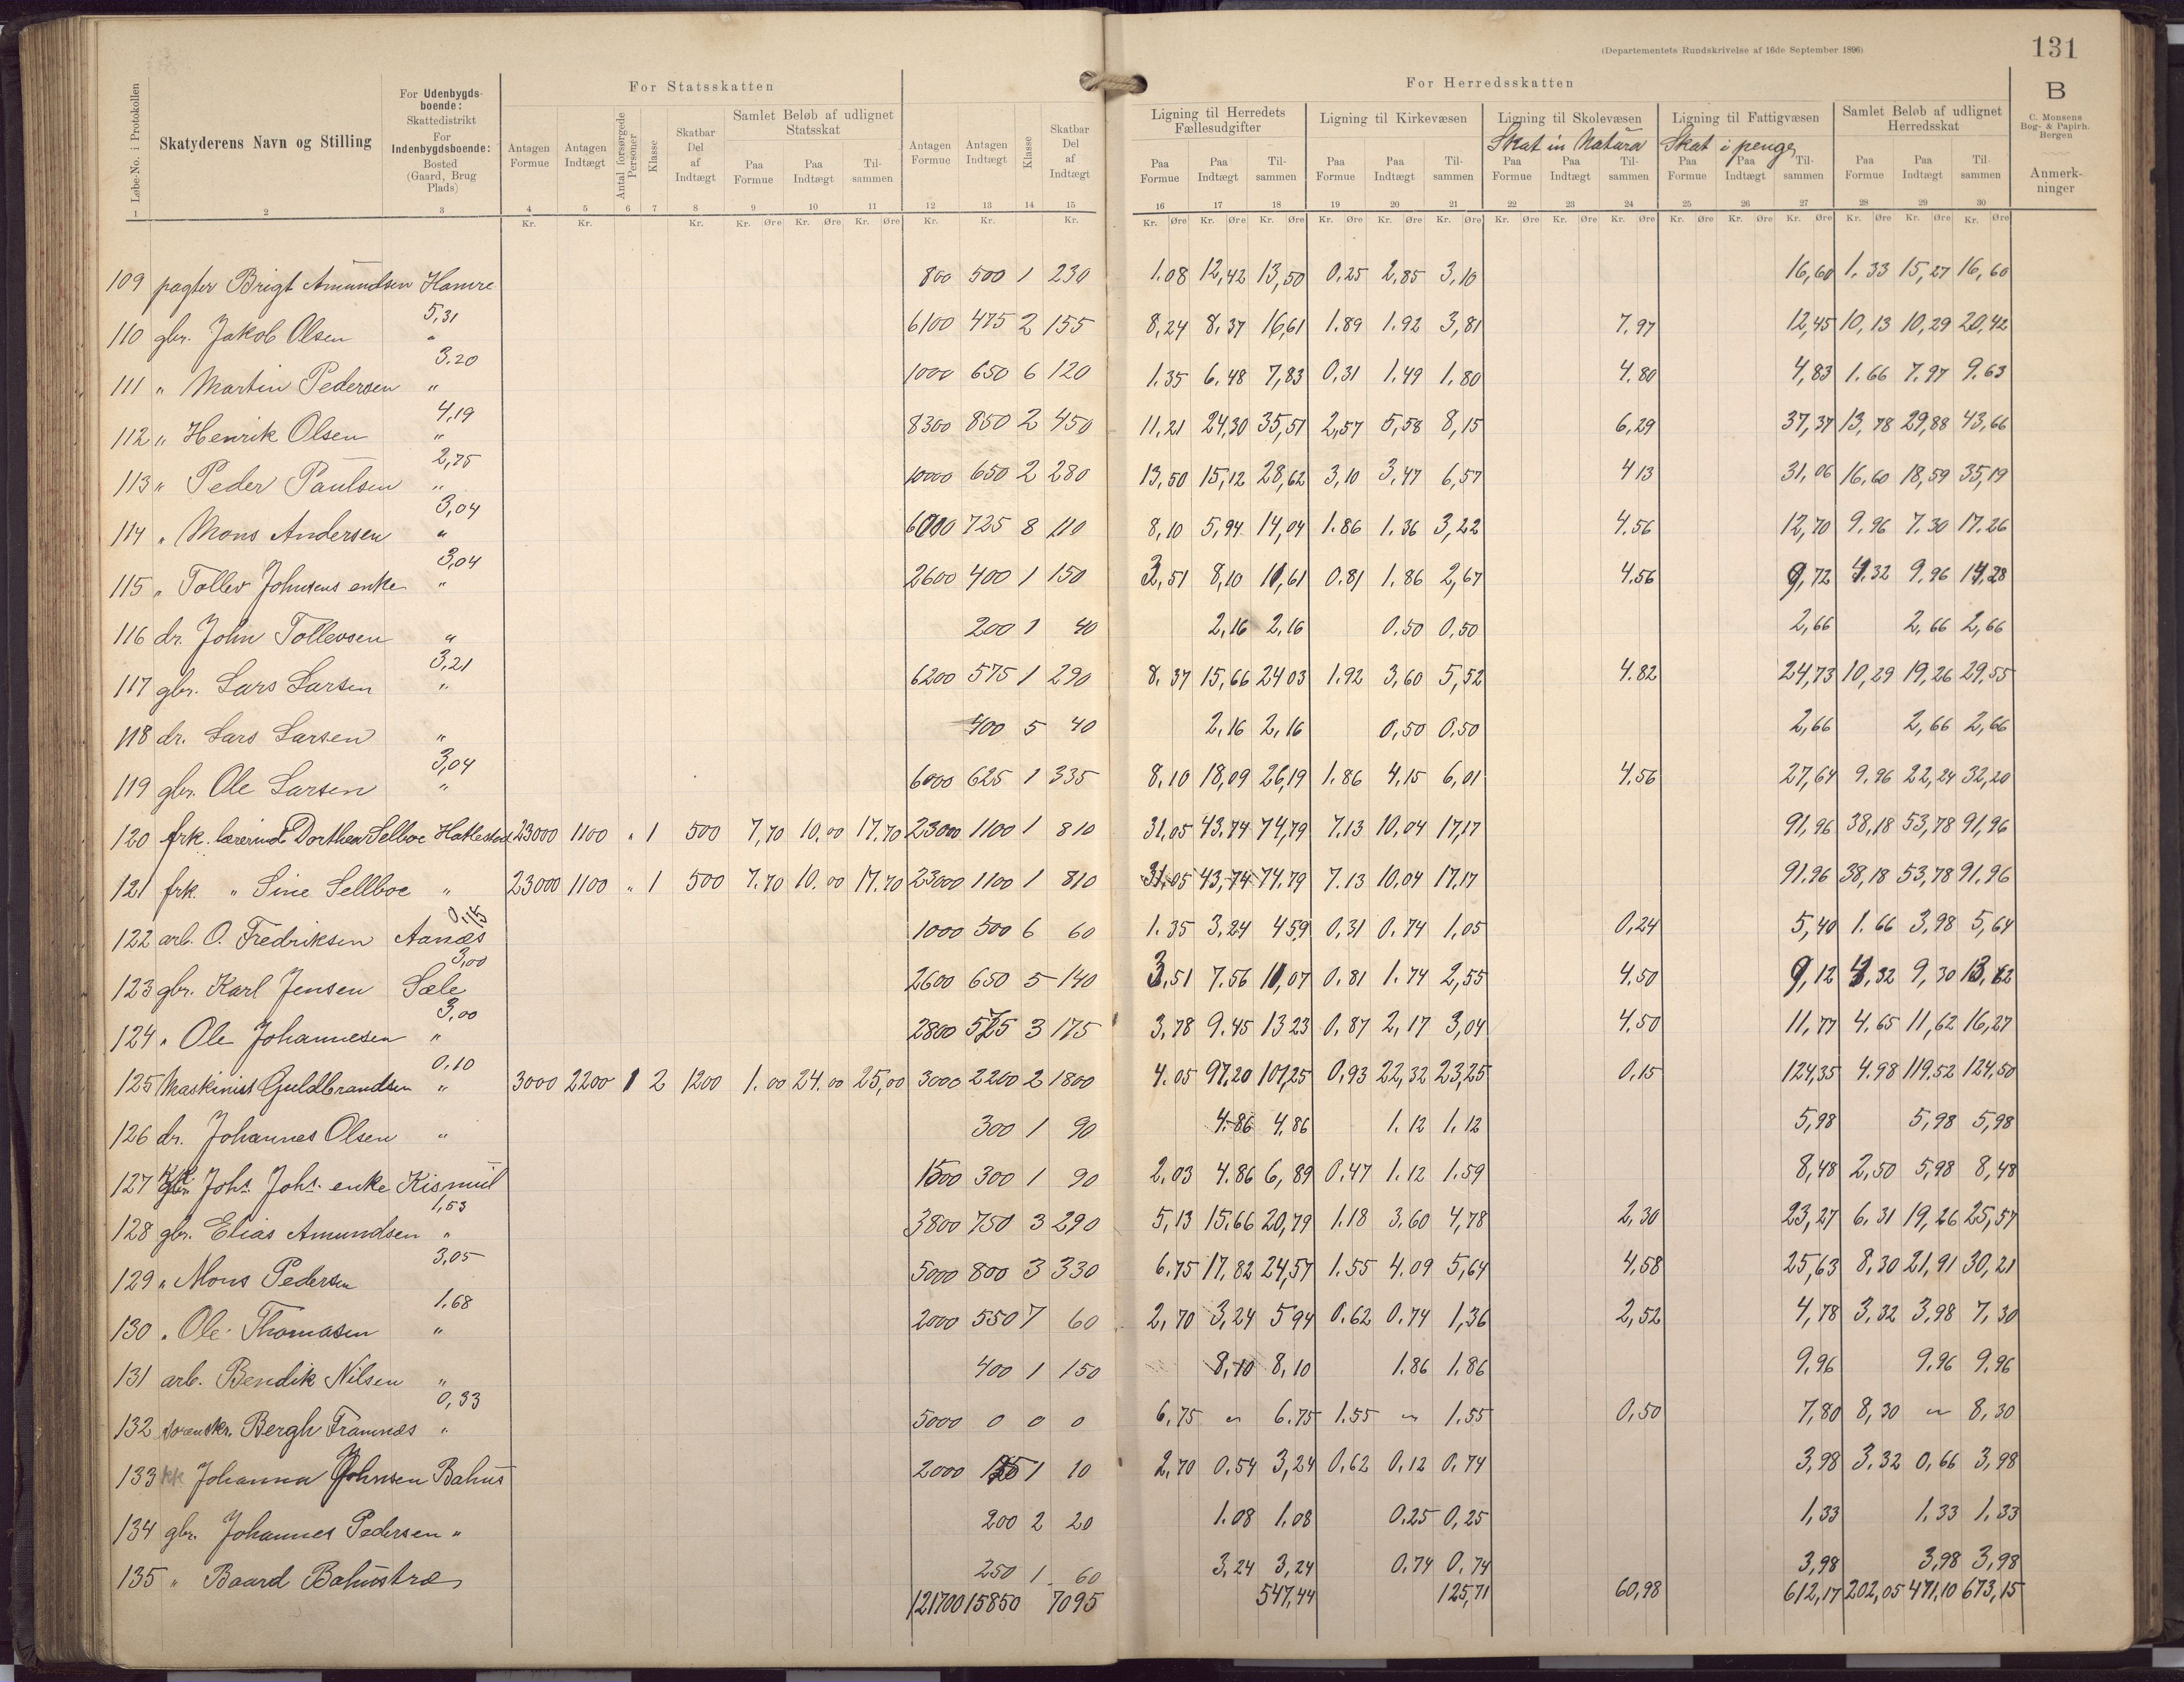 (Departementets Rundskrivelse af 16de September 1896)
131
Løbe-No. i Protokollen
Skatyderens Navn og Stilling
For Udenbygds-boende:
Skattedistrikt
For Indenbygdsboende:
Bosted
(Gaard, Brug
Plads)
For Statsskatten
Antagen Formue
Antagen Indtægt
Antal forsørgede Personer
Klasse
Skatbar Del af Indtægt
Samlet Beløb af udlignet Statsskat
Paa Formue
Paa Indtægt
Til-sammen
For Herredsskatten
Antagen Formue
Antagen Indtægt
Klasse
Skatbar Del af Indtægt
Ligning til Herredets Fællesudgifter
Ligning til Kirkevæsen
Ligning til Skolevæsen
Skat in Natura
Ligning til Fattigvæsen
Skat i penge
Samlet Beløb af udlignet Herredsskat
Paa Formue Paa Indtægt Til-sammen
B
C. Monsens
Bog- & Papirh.
Bergen
Anmerk-ninger
1 2 3 4 5 6 7 8 9 10 11 12 13 14 15 16 17 18 19 20 21 22 23 24 25 26 27 28 29 30
Kr. Øre
109 pagter Brigt Amundsen Hamre 800 500 1 230 1.08 12,42 13,50 0.25 2,85 3,10 16,60 1.33 15,27 16,60
5,31
110 gbr. Jakob Olsen " 6100 475 2 155 8,24 8,37 16,61 1.89 1.92 3,81 7,97 12,45 10,13 10,29 20,42
3.20
111 " Martin Pedersen " 1000 650 6 120 1.35 6.48 7,83 0,31 1,49 1,80 4.80 4,83 1.66 7.97 9.63
4,19
112 " Henrik Olsen " 8300 850 2 450 11,21 24,30 35,51 2,57 5,58 8,15 6,29 37,37 13,78 29,88 43,66
2,75
113 " Peder Paulsen " 10000 650 2 280 13,50 15,12 28,62 3,10 3,47 6,57 4 13 31,06 16,60 18,59 35,19
3,04
114 " Mons Andersen " 6000 725 8 110 8,10 5,94 14,04 1.86 1.36 3,22 4,56 12,70 9.96 7.30 17.26
3,04
115 " Tollev Johnsens enke " 2600 400 1 150 3,51 8,10 11,61 0.81 1.86 2,67 4.56 9,72 4.32 9.96 14,28
116 dr. John Tollevsen " 200 1 40 2,16 2,16 0.50 0,50 2,66 2,66 2,66
3,21
117 gbr. Lars Larsen " 6200 575 1 290 8.37 15,66 24 03 1.92 3,60 5,52 4.82 24,73 10,29 19,26 29.55
118 dr. Lars Larsen " 400 5 40 2,16 2,16 0,50 0.50 2,66 2,66 2,66
3,04
119 gbr. Ole Larsen " 6000 625 1 335 8,10 18,09 26,19 1.86 4,15 6,01 4.56 27,64 9.96 22,24 32,20
120 frk. lærerind Dorthea Sellboe Hatlestad 23000 1100 " 1 500 7,70 10,00 17.70 23000 1100 1 810 31,05 43.74 74,79 7.13 10,04 17,17 91,96 38,18 53,78 91,96
121 frk. " Sine Sellboe " 23000 1100 " 1 500 7.70 10.00 17.70 23000 1100 1 810 31,05 43,74 74.79 7.13 10,04 17,17 91.96 38,18 53,78 91.96
0,15
122 arb. O. Fredriksen Aanæs 1000 500 6 60 1.35 3,24 4 59 0,31 0.74 1,05 0,24 5,40 1.66 3,98 5,64
3,00
123 gbr. Karl Jensen Sæle 2600 650 5 140 3,51 7.56 11,07 0.81 1.74 2,55 4,50 9,12 4,32 9,30 13,62
3,00
124 " Ole Johannesen " 2800 575 3 175 3,78 9.45 13 23 0,87 2,17 3,04 4,50 11,77 4.65 11,62 16,27
0.10
125 Maskinist Guldbrandsen " 3000 2200 1 2 1200 1.00 24.00 25,00 3000 2200 2 1800 4.05 97,20 101,25 0,93 22,32 23,25 0,15 124,35 4.98 119.52 124,50
126 dr. Johannes Olsen " 300 1 90 4.86 4,86 1.12 1,12 5,98 5,98 5,98
127 Johs. Johs. enke Kismul 1500 300 1 90 2,03 4.86 6,89 0.47 1.12 1.59 8,48 2,50 5,98 8,48
1,53
128 gbr. Elias Amundsen " 3800 750 3 290 5,13 15.66 20,79 1.18 3,60 4,78 2,30 23,27 6.31 19,26 25,57
3,05
129 " Mons Pedersen 5000 800 3 330 6.75 17,82 24,57 1.55 4.09 5,64 4,58 25,63 8,30 21,91 30,21
1.68
130 " Ole Thomasen " 2000 550 7 60 2,70 3,24 5 94 0.62 0.74 1,36 2,52 4,78 3,32 3,98 7,30
131 arb. Bendik Nilsen " 400 1 150 8,10 8,10 1.86 1.86 9,96 9,96 9,96
0,33
132 sorenskr. Bergh Framnæs " 5000 0 0 0 6,75 " 6.75 1.55 " 1.55 0,50 7,80 8,30 " 8,30
133 kk Johanna Johnsen Bahus 2000 125 1 10 2,70 0.54 3,24 0.62 0.12 0.74 3,98 3.32 0,66 3,98
134 gbr. Johannes Pedersen " 200 2 20 1.08 1,08 0.25 0,25 1,33 1.33 1.33
135 " Baard Bahustræ 250 1 60 3,24 3,24 0.74 0,74 3,98 3,98 3,98
121700 15850 7095 547,44 125,71 60,98 612,17 202,05 471,10 673,15